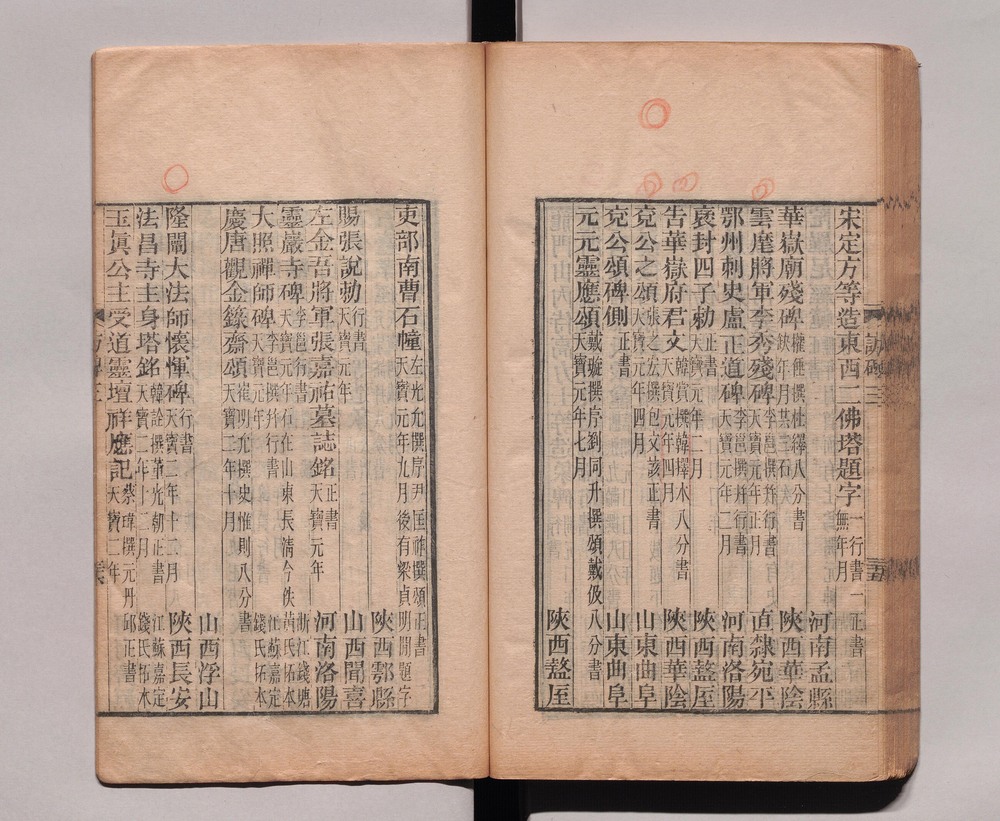 宋定方等造東西二佛塔題字 一行書一正書 無年月 河南孟縣
華嶽廟殘碑 權倕撰杜繹八分書 年月某字石 陝西華陰
雲麾將軍李秀殘碑 李邕撰并行書 天寶元年正月 直隸宛平
鄂州刺史盧正道碑 李邕撰并行書 天寶元年二月 河南洛陽
褒封四子勅 正書 天寶元年二月 陝西盩厔
告華嶽府君文 韓賞撰韓擇木八分書 天寶元年四月 陝西華陰
兗公之頌 張之宏撰包文該正書 天寶元年四月 山東曲阜
兗公頌碑側 正書 山東曲阜
元元靈應頌 戴璇撰序劉同升撰頌戴伋八分書 天寶元年七月 陝西盩厔
吏部南曹石幢 左光允撰序尹匡祚撰頌正書 天寶元年九月後有梁貞明間題字 陝西鄠縣
賜張說勅 行書 天寶元年 山西聞喜
左金吾將軍張嘉祐墓誌銘 正書 天寶元年 河南洛陽
靈巖寺碑 李邕行書 天寶元年石在山東長清今佚 浙江錢塘黃氏拓本
大照禪師碑 李邕撰并行書 天寶元年 江蘇嘉定錢氏拓本
慶唐觀金籙齋頌 崔明允撰史惟則八分書 天寶二年十月 山西浮山
隆闡大法師懷惲碑 行書 天寶二年十二月 陝西長安
法昌寺主身塔銘 韓詮撰董光朝正書 天寶二年二月 江蘇嘉定錢氏拓本
玉真公主受道靈壇祥應記 蔡瑋撰元丹邱正書 天寶二年